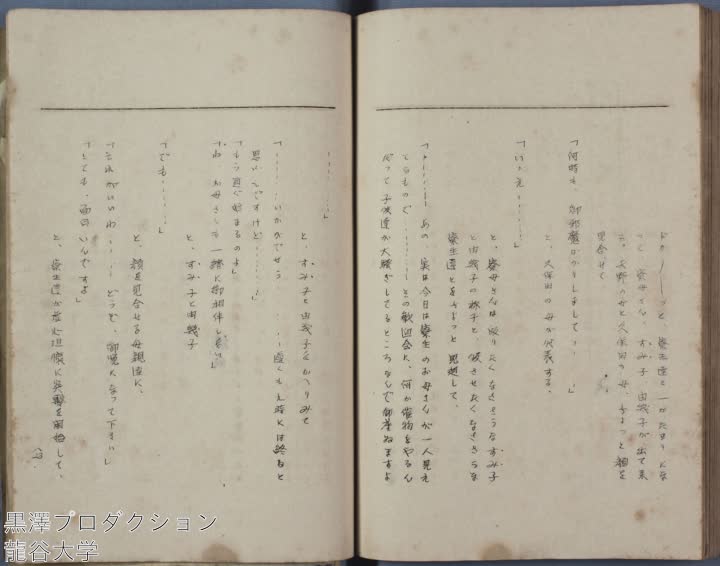 ドカ……っと、寮生達と一かたまりにな
って、寮母さん、すみ子、由幾子が出て来
た、矢野の母と久保田の母、ちょっと顔を
見合せて
「何時も、御邪魔ばかりしまして……」
と、久保田の母が代表する。
「いゝえ……」
と、寮母さんは帰りたくなささうなすみ子
と由幾子の様子と、帰させたくなささうな
寮生達とをちょっと見廻して、
「あの、実は今日は寮生のお母さんが一人見え
とるもので……その歓迎会に、何か催物をやるん
だって子供達が大騒ぎしてるところなんで御座ゐますよ
……」
と、すみ子と由幾子をかへりみて
「……いかがでせう……遅くも九時には終ると
思いんですけど……」
「もう直ぐ始まるのよ」
「ね、お母さんも一緒に御相伴しない」
と、すみ子と由幾子
「でも……」
と、顔を見合せる母親達に、
「それがいいわ……どうぞ、御覧になって下さい」
「とても、面白いんですよ」
と、寮生達が忽ち坦懐に攻撃を開始して、
黒澤プロダクション
龍谷大学